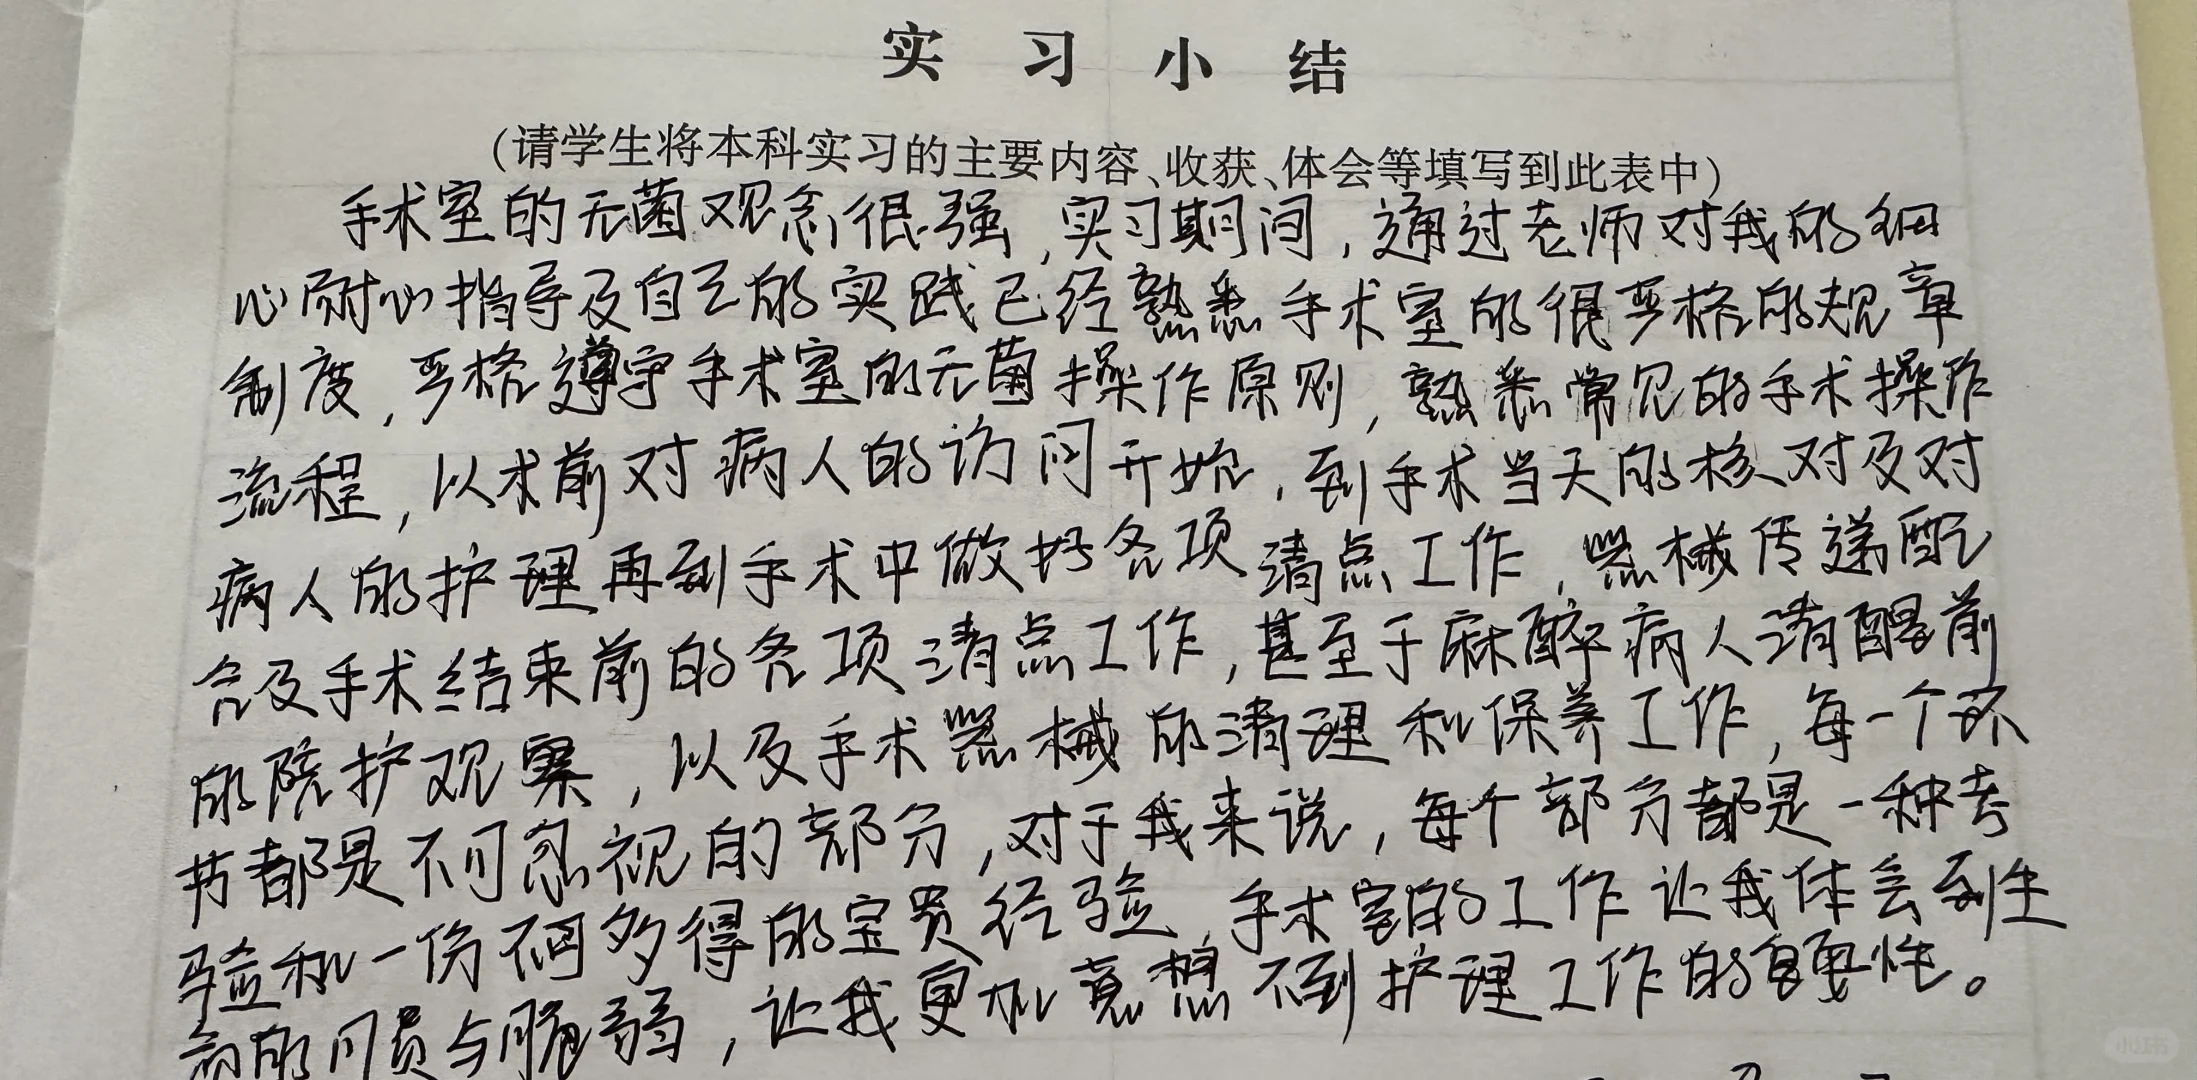 实习小结
(请学生将本科实习的主要内容、收获、体会等填写到此表中)
手术室的无菌观念很强,实习期间,通过老师对我的细
心耐心指导及自己的实践已经熟悉手术室的很严格的规章
制度,严格遵守手术室的无菌操作原则,熟悉常见的手术操作
流程,以术前对病人的访问开始,到手术当天的核对及对
病人的护理再到手术中做好各项清点工作,器械传递配
合及手术结束前的各项清点工作,甚至于麻醉病人清醒前
的陪护观察,以及手术器械的清理和保养工作,每一个环
节都是不可忽视的部分,对于我来说,每个部分都是一种考
验和一份不可多得的宝贵经验,手术室的工作让我体会到生
命的可贵与脆弱,让我更加意想不到护理工作的重要性。
小红书